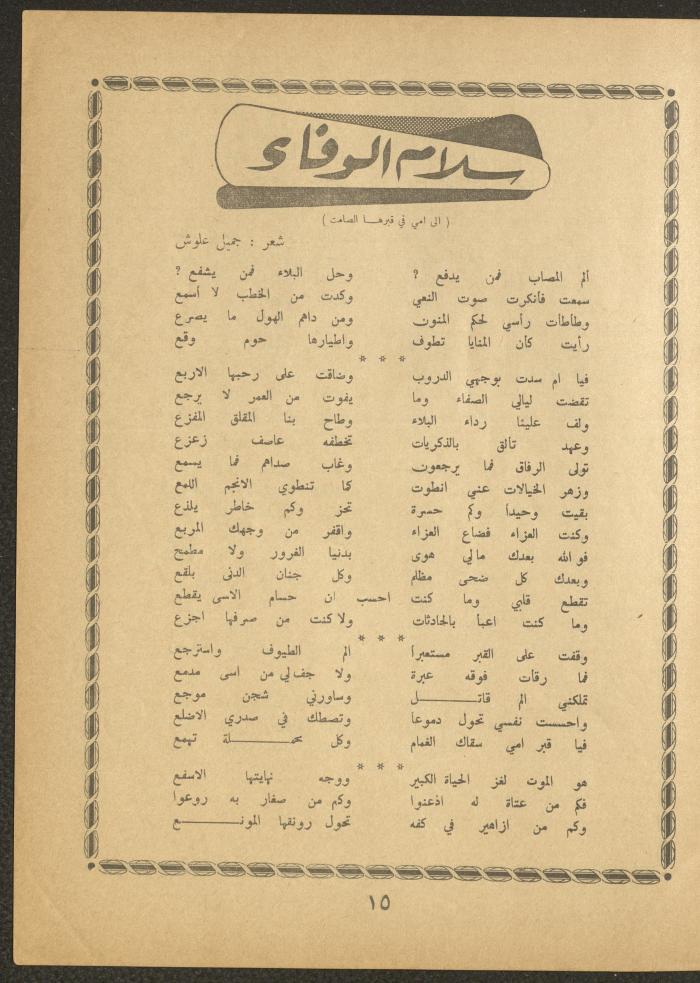 سلام الوفاء
( الى امي في قبرهـا الصامت )
شعر : جميل علوش
ألم المصاب فمن يدفع ؟ وحل البلاء فمن يشفع ؟
سمعت فأنكرت صوت النعي وكدت من الخطب لا أسمع
وطأطأت رأسي لحكم المنون ومن داهم الهول ما يصرع
رأيت كأن المنايا تطوف واطيارها حوم وقع
* * *
فيا ام سدت بوجهي الدروب وضاقت على رحبها الاربع
تقضت ليالي الصفاء وما يفوت من العمر لا يرجع
ولف علينا رداء البلاء وطاح بنا المقلق المفزع
وعهد تألق بالذكريات تخطفه عاصف زعزع
تولى الرفاق فما يرجعون وغاب صداهم فما يسمع
وزهر الخيالات عني انطوت كما تنطوي الانجم اللمع
بقيت وحيداً وكم حسرة تحز وكم خاطر يلذع
وكنت العزاء فضاع العزاء واقفر من وجهك المربع
فو الله بعدك مالي هوى بدنيا الغرور ولا مطمح
وبعدك كل ضحى مظلم وكل جنان الدنى بلقع
تقطع قلبي وما كنت احسب ان حسام الاسى يقطع
وما كنت اعبأ بالحادثات ولا كنت من صرفها اجزع
* * *
وقفت على القبر مستعبراً الم الطيوف واسترجع
فما رقأت فوقه عبرة ولا جف لي من اسى مدمع
تملكني الم قاتــــل وساورني شجن موجع
واحسست نفسي تحول دموعا وتصطك في صدري الاضلع
فيا قبر امي سقاك الغمام وكل تهمع
* * *
هو الموت لغز الحياة الكبير ووجه نهايتها الاسفع
فكم من عتاة له اذعنوا وكم من صغار به روعوا
وكم من ازاهير في كفه تحول رونقها المونــــع
١٥